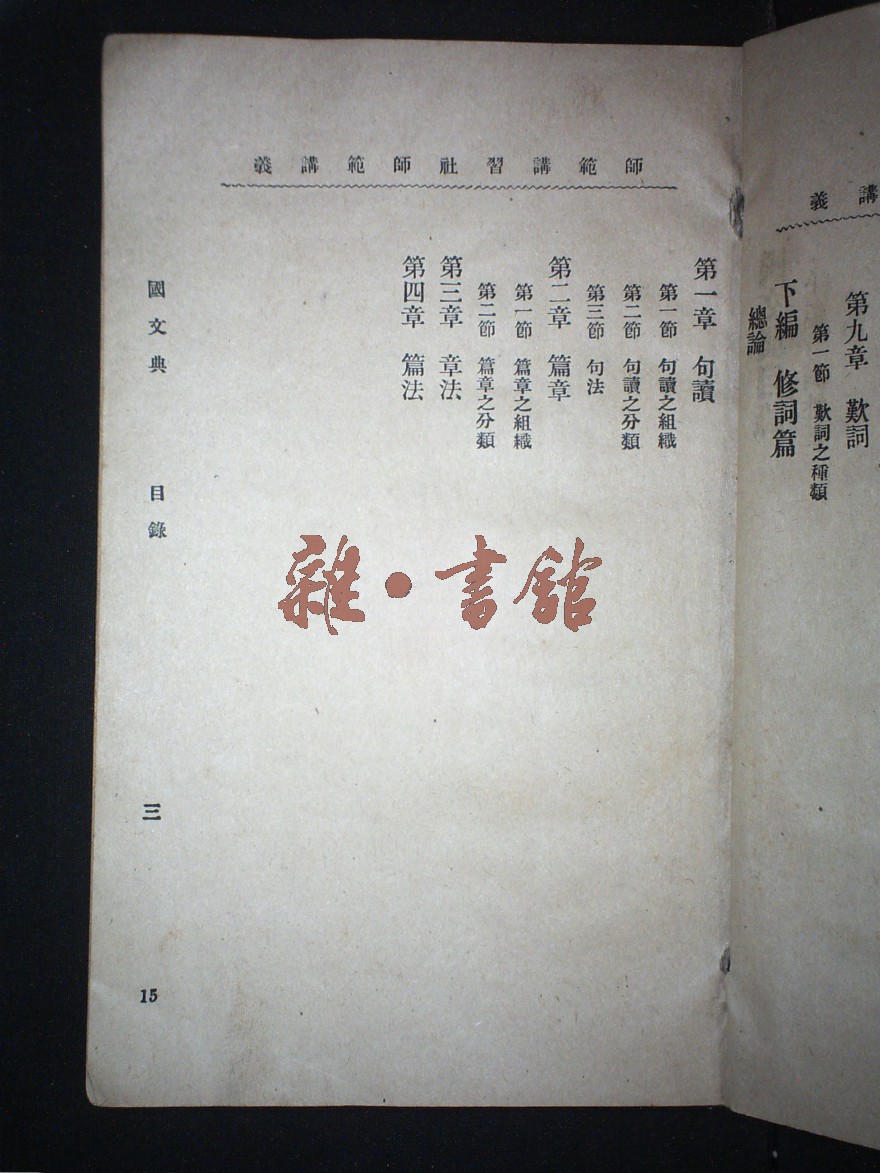 講義
第九章　歎詞
第一節　歎詞之種類
下編　修詞篇
總論
師範講習社師範講義
第一章　句讀
第一節　句讀之組織
第二節　句讀之分類
第三節　句法
第二章　篇章
第一節　篇章之組織
第二節　篇章之分類
第三章　章法
第四章　篇法
國文典　目錄　三
15
雜·書館